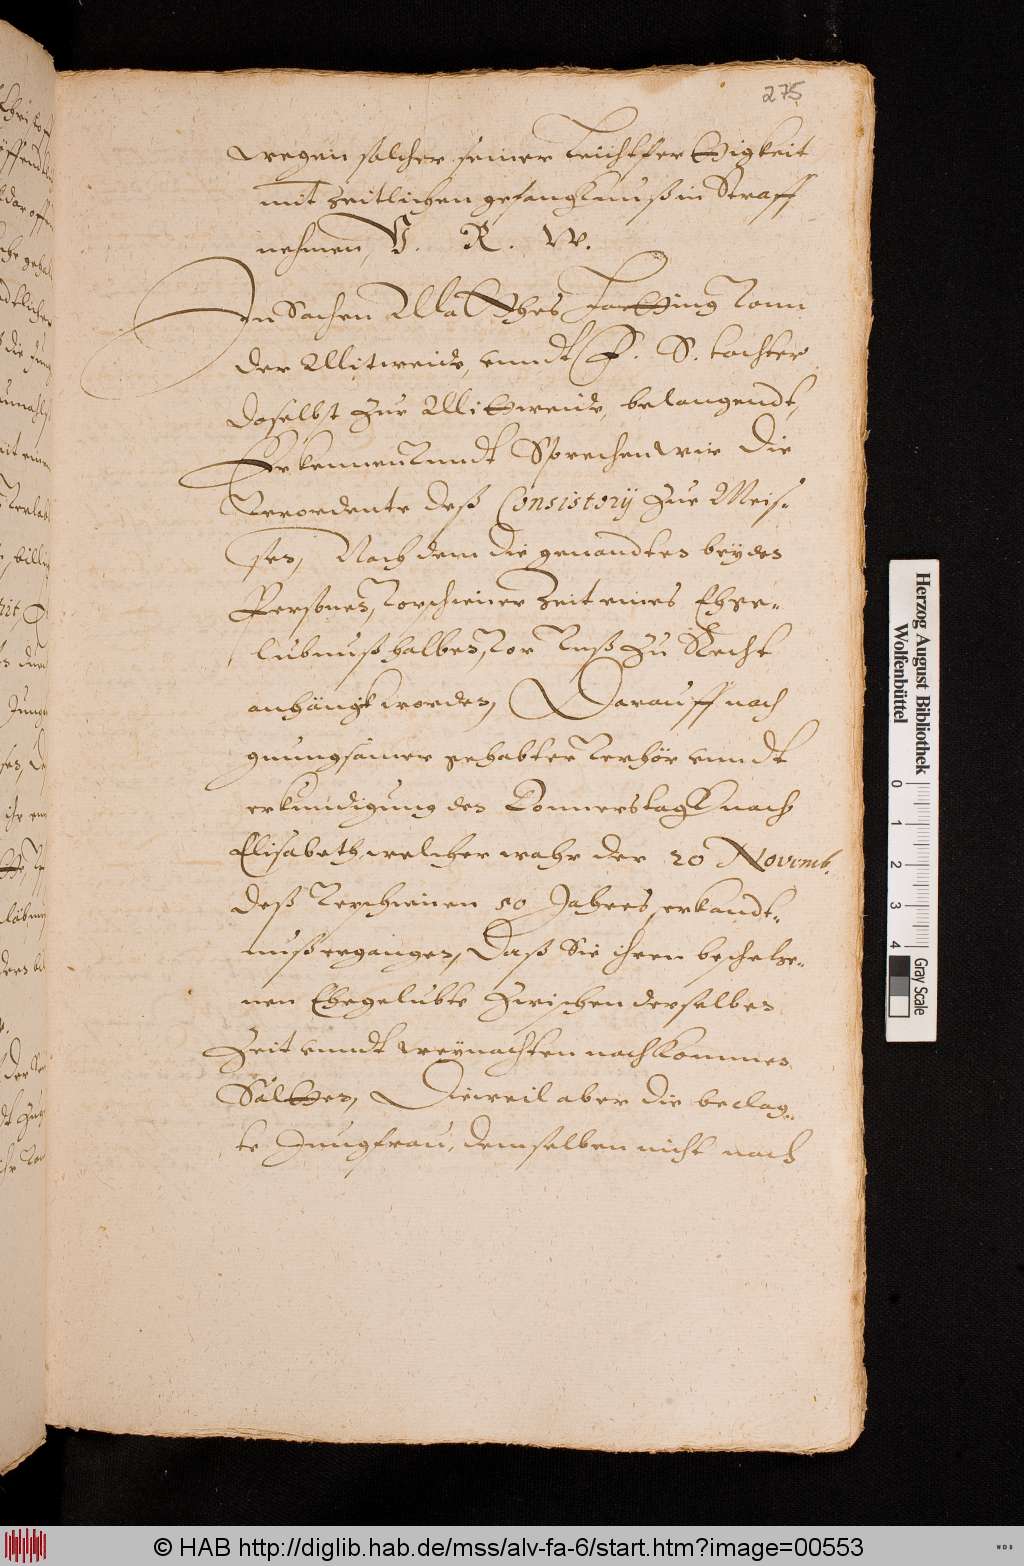 275
wegen solcher seiner Leichtfertigkeit
mit zeitlichen gefangknuß in Straff
nehmen, V. R. W.
In Sachen Matthes vonn
der Mitweide, unndt F. S. tochter
doselbst zur Mittweide, belangendt,
Erkennen vnndt Sprechen wir die
Verordente deß Consistorÿ zue Meis-
sen, Nach dem die genandten beÿden
Personen, vorschiener Zeit eines Ehege-
lubnuß halben, vor vnß zu Recht
anhängk worden, Darauff nach
gnungsamer gehabter verhör unndt
erkundigung den Donnerstagk nach
Elisabeth, welcher wahr der 20 Novemb.
deß verschienen 50 Jahres, erkandt-
nuß ergangen, Daß Sie ihren beschehe-
nen Ehegelubte zwischen derselben
Zeit unndt weÿnachten nachkommen
Solten, Dieweil aber die beclag-
te Jungfrau, demselben nicht nach
Herzog August Bibliothek
Wolfenbüttel
0 1 2 3 4
Gray Scale
© HAB http://diglib.hab.de/mss/alv-fa-6/start.htm?image=00553